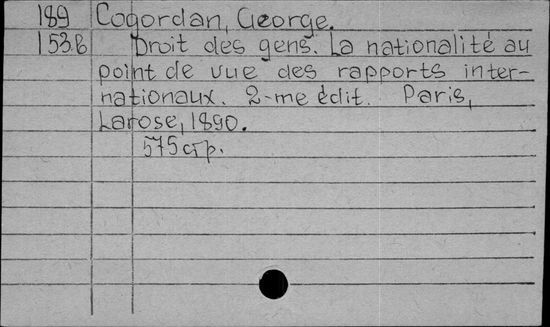 189 Cogordan, George.
153б Droit des gens. La nationalité au
point de vue des rapports inter-
nationaux. 2-me édit. Paris,
Larose, 1890.
575 стр.